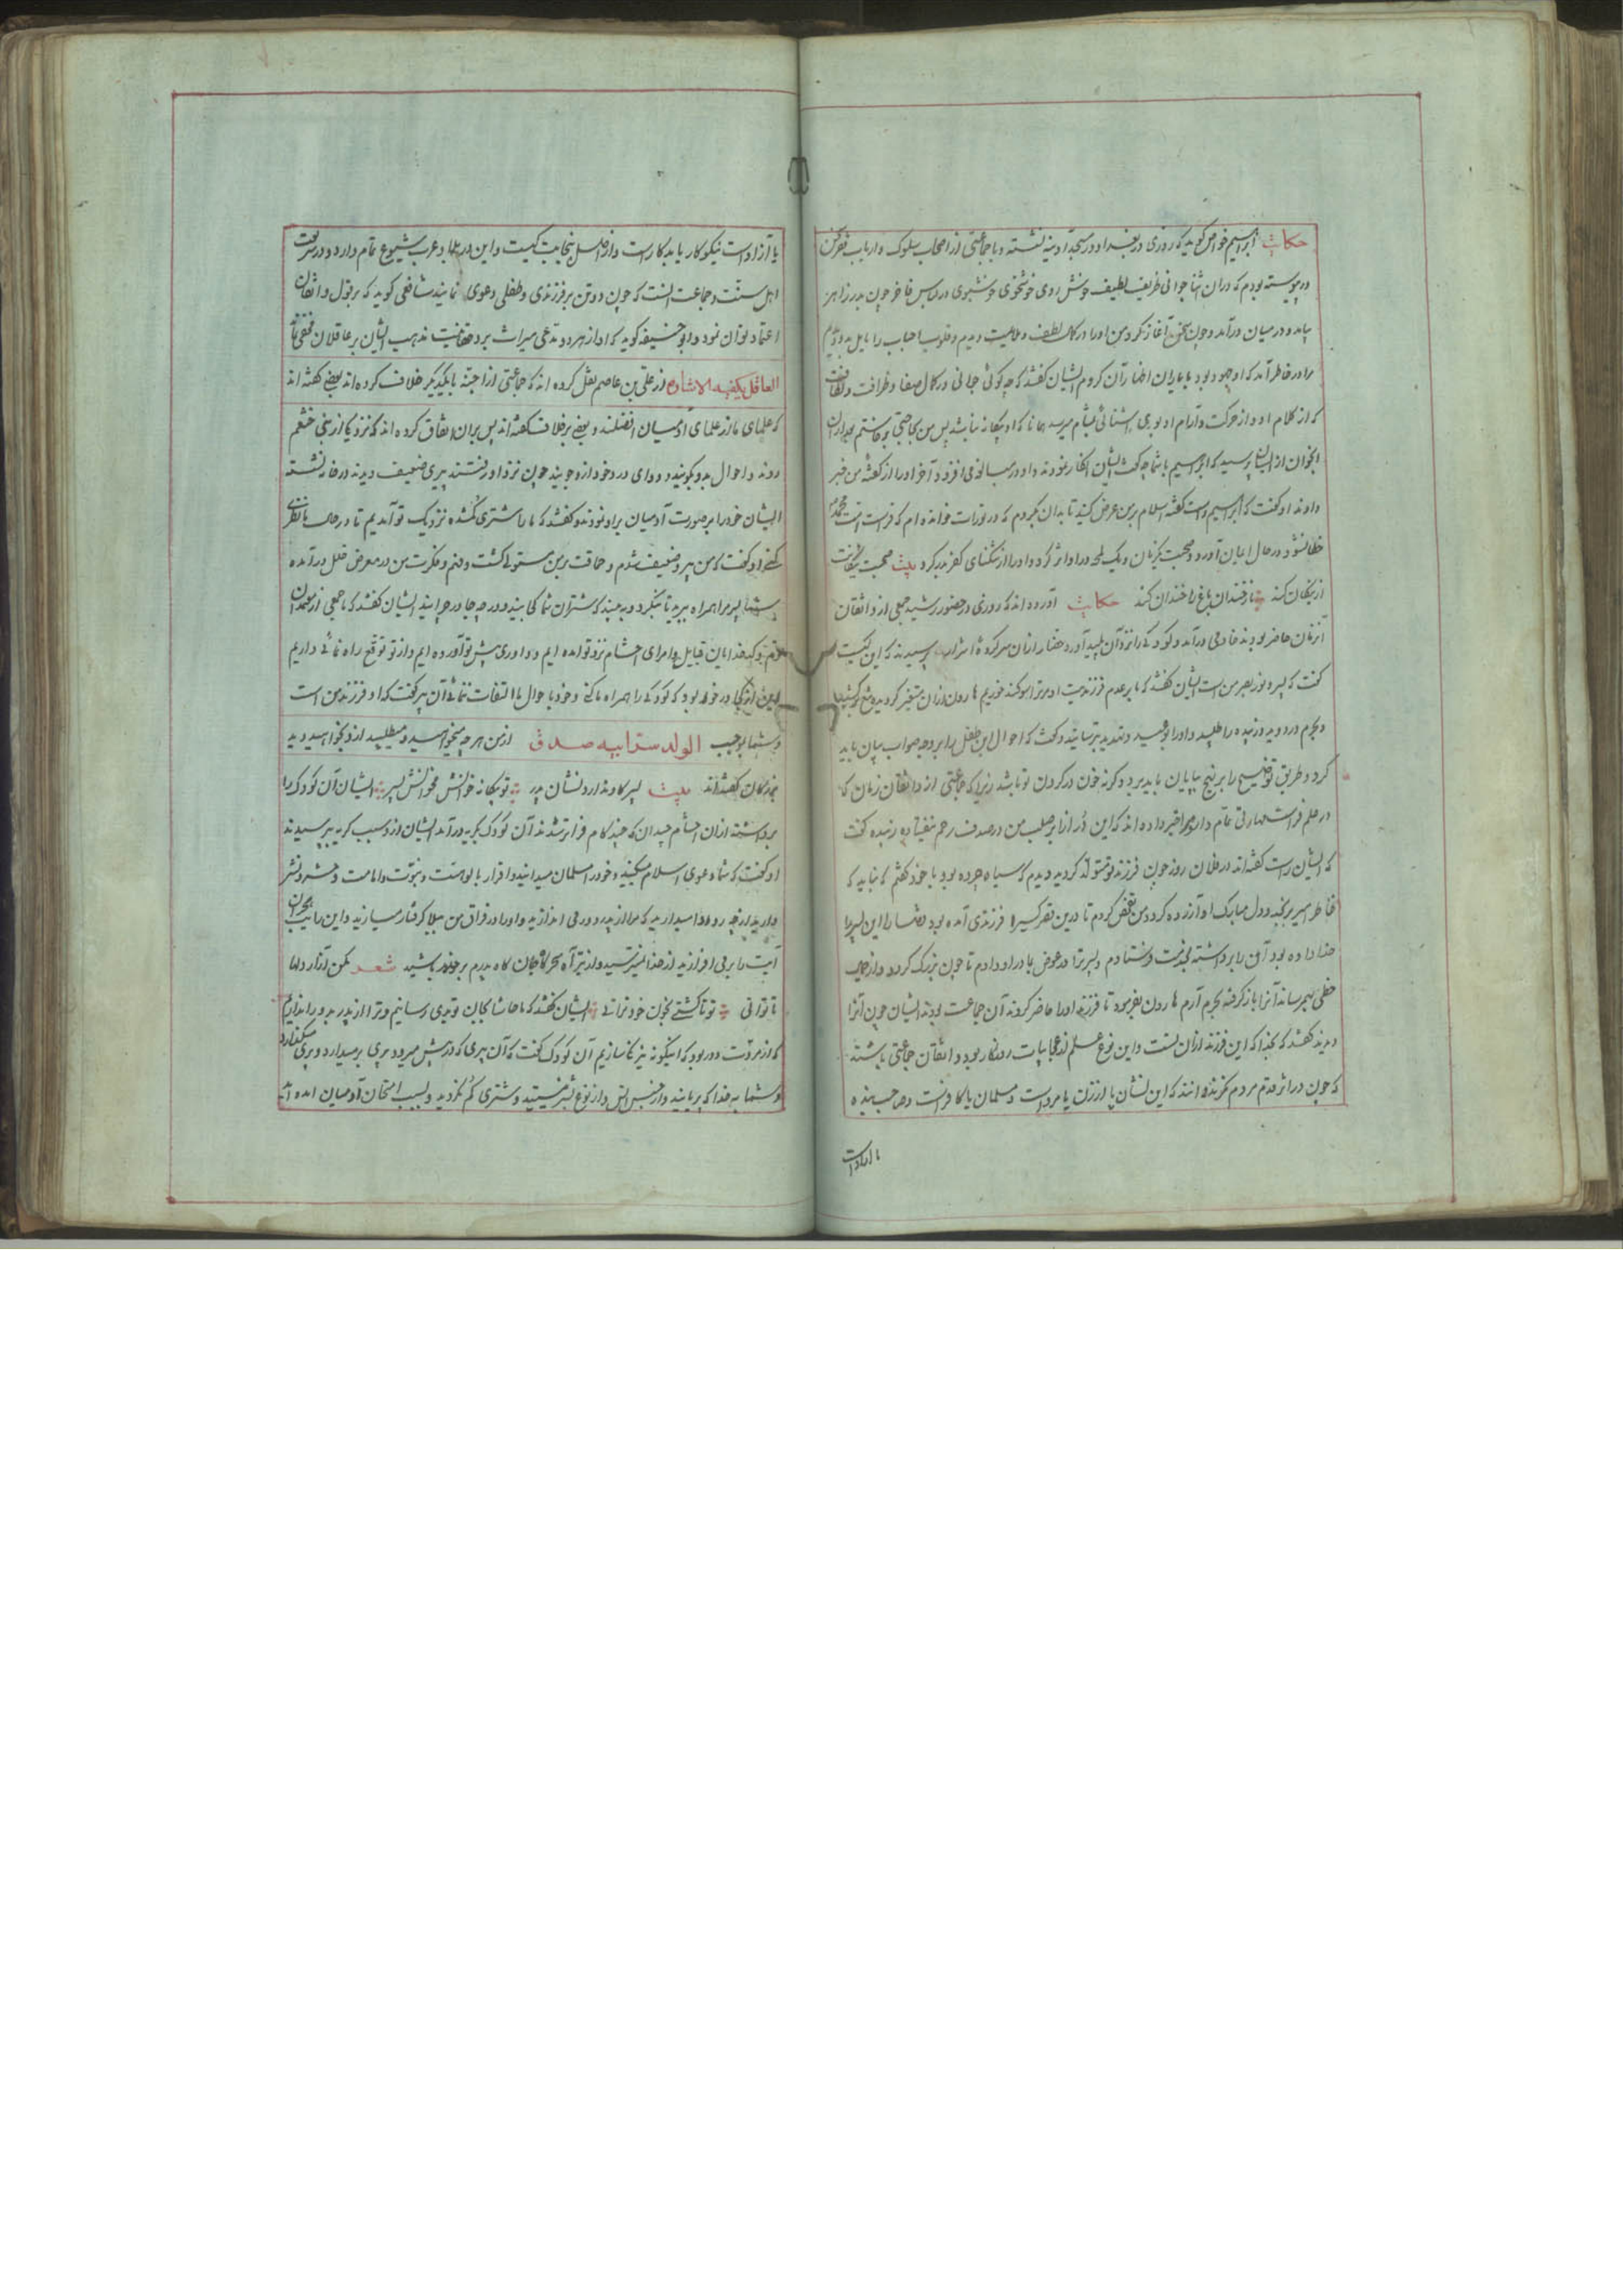 حکایت ابراهیم خواص گوید که روزی در بغداد در مسجد آدینه نشسته و با جماعتی از اصحاب سلوک و ارباب فقر سخن
در پیوسته بودم که دران اثنا جوانی ظریف لطیف خوش روی خوشخوی خوشبوی در لباس فاخر چون بدر زاهر
بیامد و در میان درآمد و چون سخن آغاز کرد من اورا در کمال لطف و ملاحت دیدم و قلوب احباب را مایل بدو دیدم
مرا در خاطر آمد که او جهود بود با یاران اظهار آن کردم ایشان گفتند که چه کوئی جوانی در کمال صفا و ظرافت و لطافت
که از کلام او و از حرکت و آرام او بوی آشنائی بمشام میرسد همانا که او بیگانه نباشد پس من بحاجتی برخاستم بعد ازان
آنجوان از ایشان پرسید که ابراهیم با شما چه گفت ایشان انکار نمودند و او در مبالغه می افزود آخر اورا از گفته من خبر
دادند او گفت که ابراهیم راست گفته اسلام برمن عرض کنید تا بدان بگروم که در تورات خوانده ام که فراست امت محمد
خطا نشود در حال ایمان آورد و صحبت یکزمان و یک لمحه در او اثر کرد و اورا از تنگنای کفر بدر کرد بیت صحبت نیکانت
از نیکان کند نار خندان باغ را خندان کند حکایت آورده اند که روزی در حضور رشید جمعی از واثقان
آنزمان حاضر بودند خادمی درآمد و کودکی را نزد آن پلید آورد حضار ازان سر کرده اشرار پرسیدند که این کیست
گفت که پسر و نور بصر من است ایشان گفتند که ما بر عدم فرزندیت او مر ترا سوگند خوریم هارون ازان متغیر گردید
و بحرم در دوید و زبیده را طلبید و اورا تهدید ترسانید و گفت که احوال این طفل را بر وجه صواب بیان باید
کرد و طریق توضیح را بر نهج بپایان باید برد و گرنه خون در گردن تو باشد زیرا که جماعتی از واثقان زمان که
در علم فراست مهارتی تمام دارند مرا خبر داده اند که این در از ابر صلب من در صدف رحم نیفتاده زبیده گفت
که ایشان راست گفته اند در فلان روز چون فرزند تو متولد گردید دیدم که سیاه چرده بود با خود گفتم که نباید که
خاطر امیر برنجد و دل مبارک او آزرده گردد من تفحص کردم تا درین قصر کسیرا فرزندی آمده بود را این پسر را
خدا داده بود آن را برداشته بخدمت فرستادم و پسر ترا در عوض بمادر او دادم تا چون بزرگ گردد و از جمال
حظی بهم رساند آنرا باز گرفته بحرم آرم هارون بفرمود تا فرزند اورا حاضر کردند آن جماعت بودند ایشان چون آنرا
دیدند گفتند که بخدا که این فرزند ازان تست و این نوع علم از عجایبات روزگار بود و واثقان جماعتی باشند
که چون در اثر قدم مردم نگرند دانند که این نشان پا از زن یا مرد است و مسلمان یا کافر است و صاحب بنده
یا آزاد است
یا آزاد است نیکو کار یا بد کار است و از اصل نجابت کیست و این در بلاد عرب شیوع تمام دارد و در شریعت
اهل سنت و جماعت آنست که چون دو تن بر فرزندی و طفلی دعوی نمایند شافعی گوید که بر قول واثقان
اعتماد توان نمود و ابو حنیفه گوید که او از هر دو مدعی میراث برد حقانیت مذهب ایشان بر عاقلان مخفی نماند
العاقل یکفیه الاشاره از علی بن عاصم نقل کرده اند که جماعتی از اجنه با یکدیگر خلاف کرده اند بعضی گفته اند
که علمای ما از علمای آدمیان افضلند و بعضی بر خلاف گفته اند پس بران اتفاق کرده اند که نزد یکی از بنی خثعم
روند و احوال بدو بگویند و دوای درد خود ازو جویند چون نزد او رفتند پیری ضعیف دیدند در خانه نشسته
ایشان خود را بر صورت آدمیان براو نمودند و گفتند که ما را شتری گمشده نزدیک تو آمدیم تا در حال ما نظری
کنی او گفت که من پیر و ضعیف شدم و حماقت برمن مستولی گشت و فهم و فکرت من در معرض خلل درآمده
شما پسر مرا همراه ببرید تا بنگرد و ببیند که شتران شما کجایند و در چه جا در چرایند ایشان گفتند که ما جمعی از
قوم و کدخدایان قبایل و امرای احشام نزد تو آمده ایم و داوری پیش تو آورده ایم و از تو توقع راه نمائی داریم
در خور بود که کودکی را همراه ما کنی و خود باحوال ما التفات ننمائی آن پیر گفت که او فرزند من است
و شما بموجب الولد سر ابیه صدق از من هر چه میخواهید و میطلبید ازو بخواهید
بزرگان گفته اند بیت پسر کاو ندارد نشان پدر تو بیگانه خوانش مخوانش پسر ایشان آن کودک را
برداشته ازان احشام چندان که چند گام فراتر شدند آن کودک بگریه درآمد ایشان ازو سبب گریه پرسیدند
او گفت که شما دعوی اسلام میکنید و خود را مسلمان میدانید و اقرار بالوهیت و نبوت و امامت و حشر و نشر
دارید از چه روا میدارید که مرا از پدر دور می اندازید و اورا در فراق من مبتلا گرفتار میسازید و این رایت
آیت را برمی افرازید از خدا نمیترسید و از تیر آه سحرگاه جان کاه پدرم بر حذر باشید شعر مکن آزار دلها
تا توانی تو تا کشتی بخون خود نرانی ایشان گفتند که ما حاشا بجای تو بدی رسانیم و ترا از پدر بدور اندازیم
که از مروت دور بود که اینگونه نیرنگ سازیم آن کودک گفت که آن پیری که در پیش میرود پری برمیدارد و پری میگذارد
و شما بخدا که پریانید و از جنس انس و از نوع بشر نیستید و شتری گم نکردید و بسبب امتحان آدمیان آمده اید